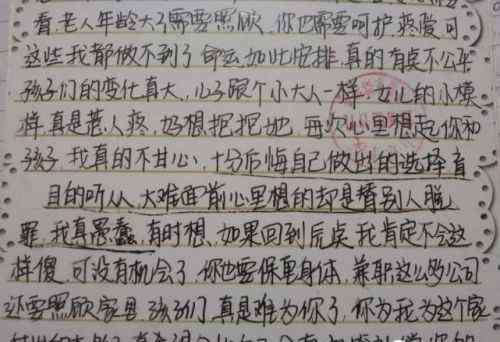 看,老人年龄大了需要照顾,你也需要呵护疼爱可
这些我都做不到了命运如此安排,真的有点不公平
孩子们的变化真大,儿子跟个小大人一样,女儿的小模
样,真是惹人疼,好想抱抱她,再次心里想起你和
孩子,我真的不甘心,十分后悔自己做出的选择盲
目的听从,大难面前心里想的却是替别人脱
罪,我真愚蠢,有时想,如果回到原点我肯定不会这
样傻,可没有机会了,你也要保重身体,兼职这么多公司
还要照顾家里,孩子们,真是难为你了,你为我为这个家